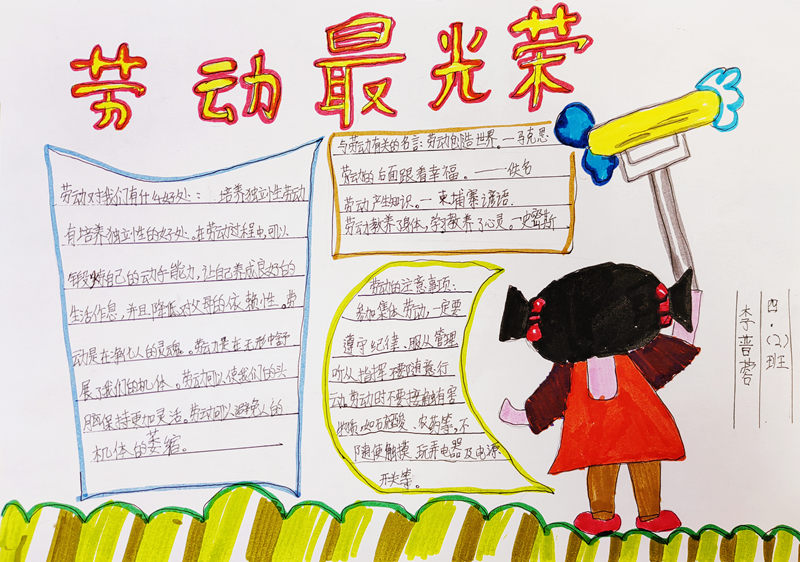 劳动最光荣
劳动对我们有什么好处：培养独立性劳动
有培养独立性的好处。在劳动过程中,可以
锻炼自己的动手能力,让自己养成良好的
生活作息,并且降低对父母的依赖性。劳
动是在净化人的灵魂。劳动是在无形中舒
展了我们的机体。劳动可以使我们的头
脑保持更加灵活。劳动可以避免人的
机体的萎缩。
与劳动有关的名言:劳动创造世界。—马克思
劳动的后面跟着幸福。——佚名
劳动产生知识。—柬埔寨谚语
劳动教养了身体,学习教养了心灵。—史密斯
劳动的注意事项:
参加集体劳动,一定要
遵守纪律、服从管理
听从指挥不要随意行
动。劳动时不要接触有害
物质,如石硫酸、农药等,不
随便触摸、玩弄电器及电源
开关等。
四·(2)班
李普蓉